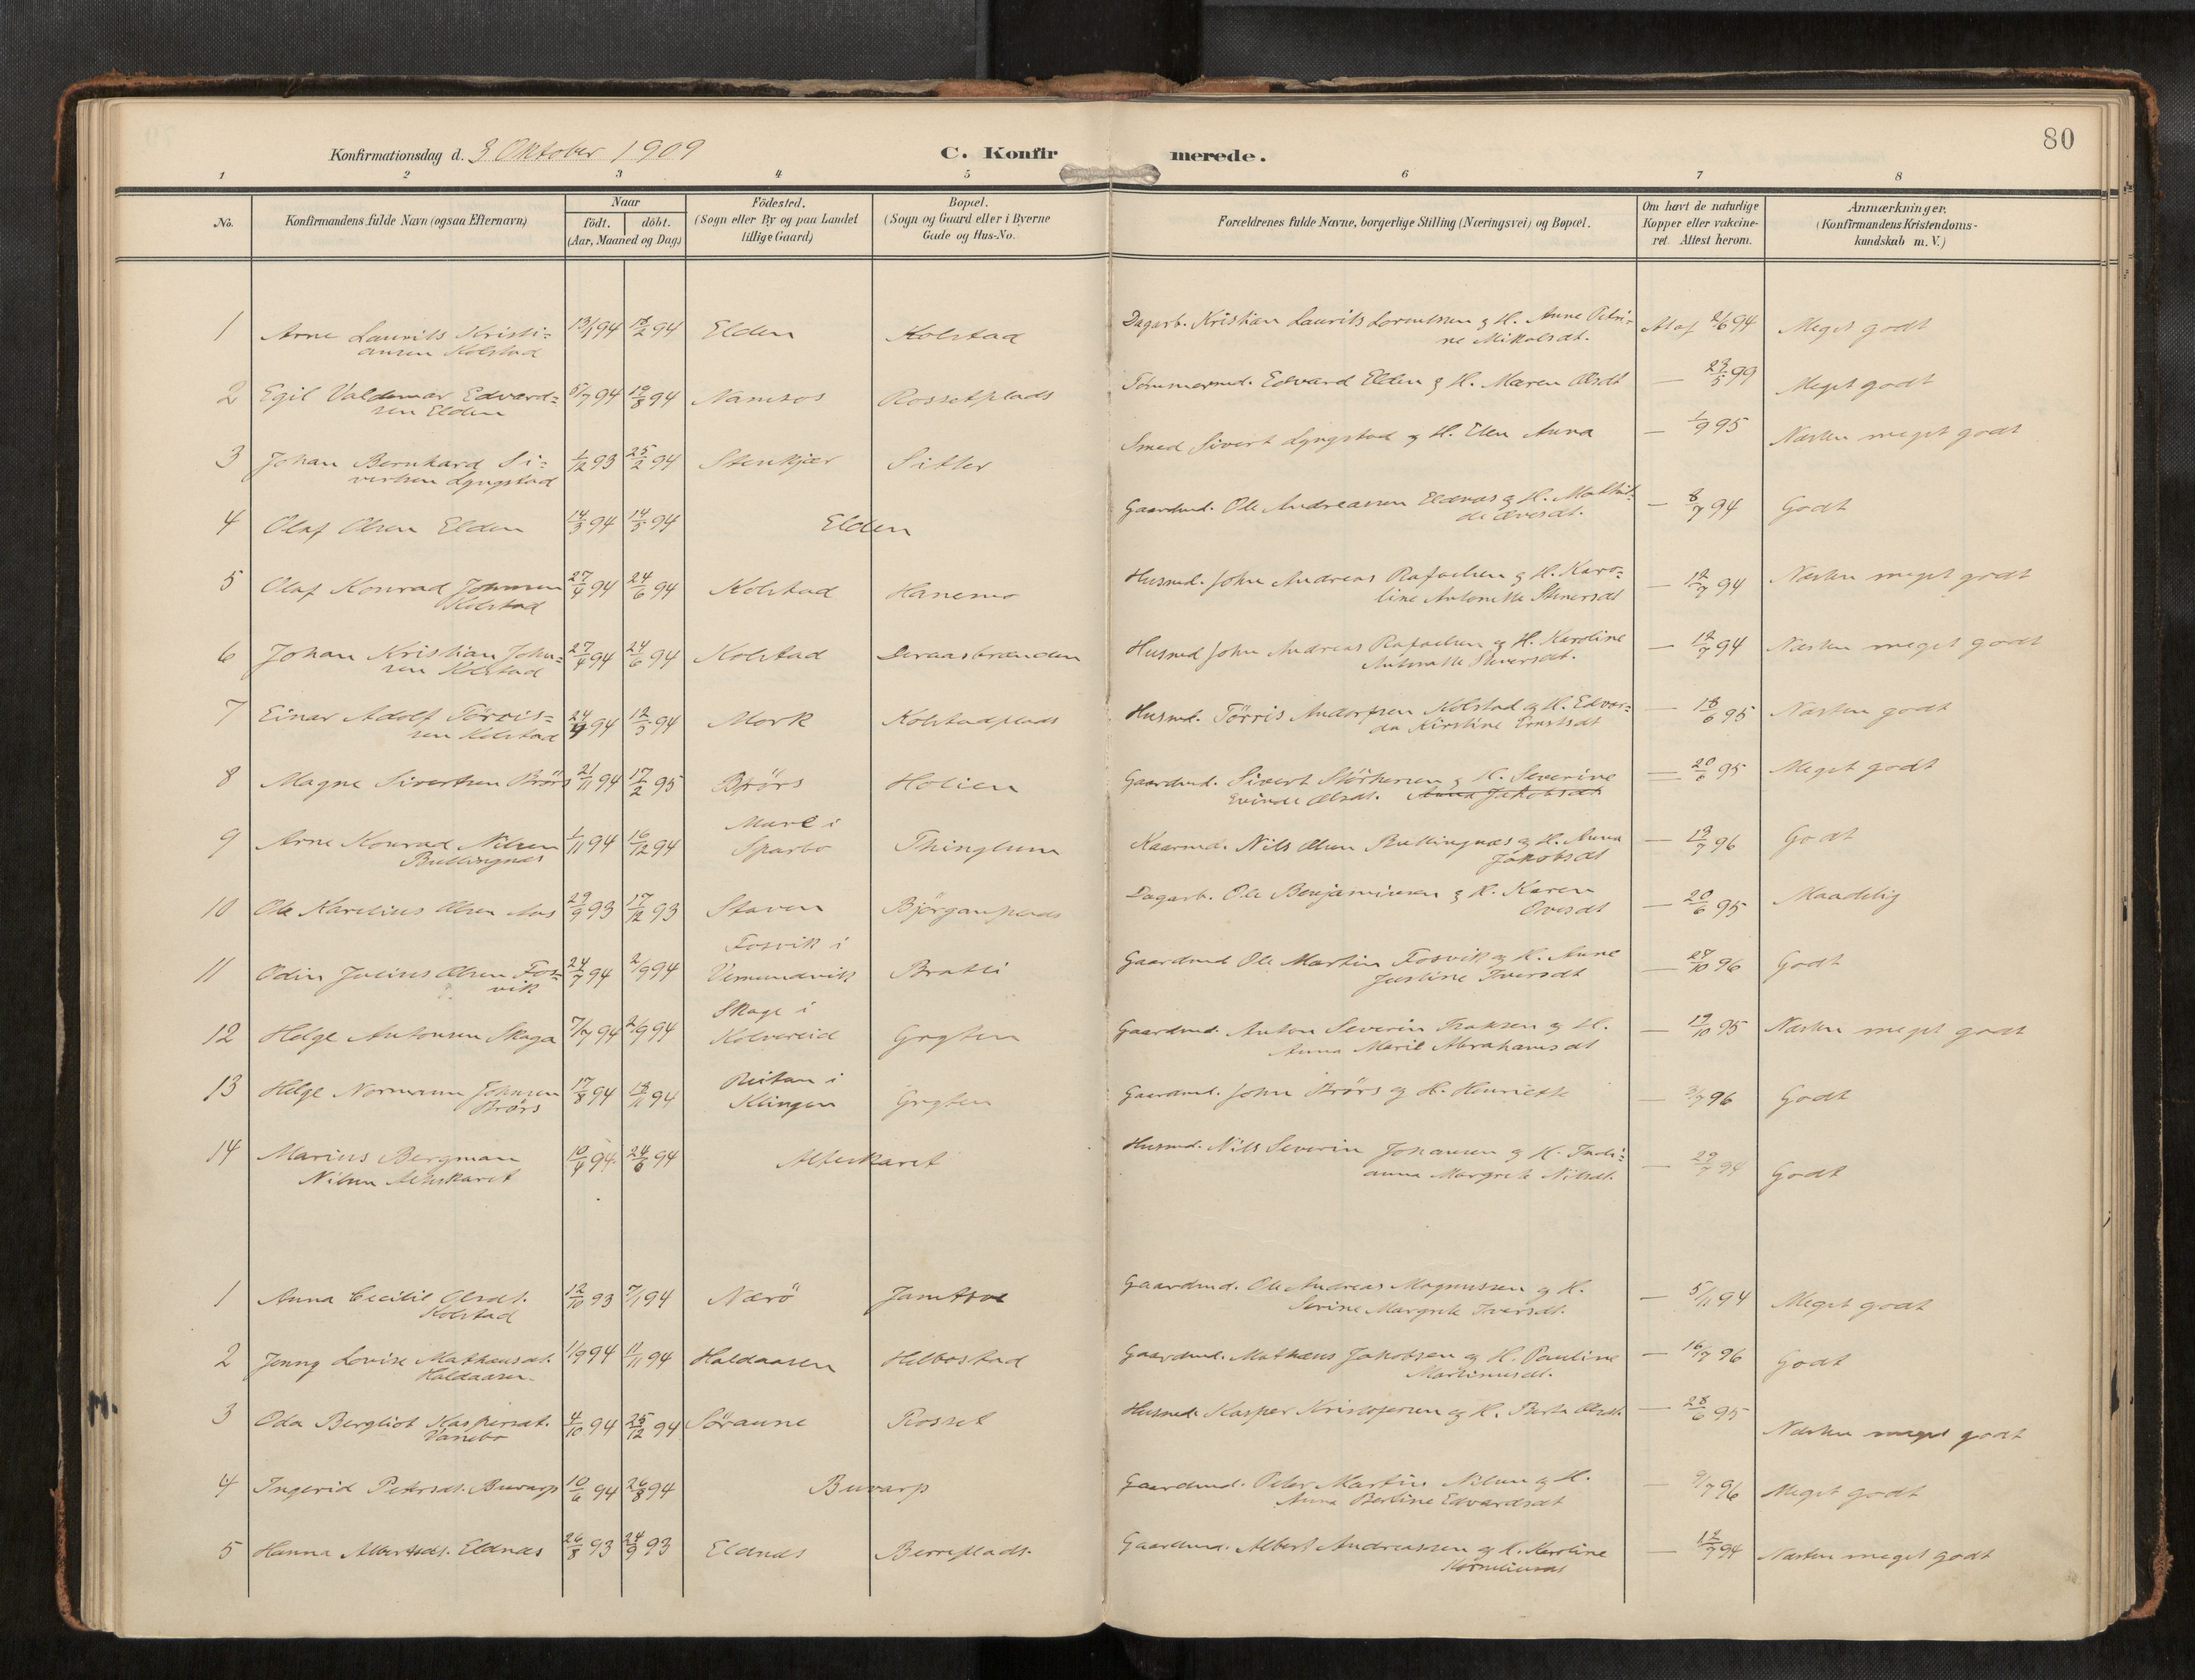 80
Konfirmationsdag d. 3 Oktober 1909
C. Konfirmerede.
1 2 3 4 5 6 7 8
No. Konfirmandens fulde Navn (ogsaa Efternavn) Naar födt. döbt. (Aar, Maaned og Dag) Födested. (Sogn eller By og paa Landet tillige Gaard) Bopæl. (Sogn og Gaard eller i Byerne Gade og Hus-No. Forældrenes fulde Navne, borgerlige Stilling (Næringsvei) og Bopæl. Om havt de naturlige Kopper eller vakcineret. Attest herom. Anmærkninger. (Konfirmandens Kristendomskundskab m. V.)
1 Arne Laurits Kristi= 13/1 94 94 Elden Kolstad Dagarb. Kristian Laurits Lorentsen & H. Anne Petri= 94 Meget godt
ansen Kolstad ne Mikalsdt.
2 Egil Valdemar Edvard= 5/7 94 19/8 94 Namsos Rossetplads Tömmermd. Edvard Elden & H. Maren Olsdt — 99 Meget godt
sen Elden
3 Johan Bernhard Si= 1/12 93 25/2 94 Stenkjær Sitter Smed Sivert Lyngstad og H. Elen Anna — 1/9 95 Næsten meget godt
vertsen Lyngstad
4 Olaf Olsen Elden 14/3 94 14/5 94 Elden Gaardmd. Ole Andreassen Eldnæs & H. Mathil= — 8/7 94 Godt
de
5 Olaf Konrad Johnsen 27/4 94 24/6 94 Kolstad Hanemo Husmd. John Andreas Rafaelsen & H. Karo= — 12/7 94 Næsten meget godt
Kolstad line Antonette
6 Johan Kristian John= 27/4 94 24/6 94 Kolstad Deraasbrænden Husmd John Andreas Rafaelsen & H. Karoline — 12/7 94 Næsten meget godt
sen Kolstad Antonette
7 Einar Adolf Törris= 94 12/5 94 Mork Kolstadplads Husmd. Törris Kolstad & H. Edvar= — 18/6 95 Næsten godt
sen Kolstad da Kirstine Ernstsdt
8 Magne Sivertsen Brörs 21/11 94 17/2 95 Brörs Holien Gaardmd. Sivert Störkersen & H. Severine — 20/6 95 Meget godt
Olsdt. Anna Jakobsdt
Mære i
9 Arne Konrad Nilsen 1/11 94 16/12 94 Sparbo Thinglum Kaarmd. Nils Olsen Bullingnæs & H. Anna — 96 Godt
Bullingnæs Jakobsdt
10 Ole Karelius Olsen Aas 29/9 93 17/12 93 Staven Björganplads Dagarb. Ole Benjaminsen & H. Karen — 20/6 95 Maadelig
Ovesdt
Fosvik i
11 Odin Julius Olsen Fos= 24/7 94 2/9 94 Vemundvik Bratli Gaardmd Ole Martin Fosvik & H. Anne — 96 Godt
vik Justine Iversdt
Skage i
12 Helge Antonsen Skage 7/7 94 2/9 94 Kolvereid Grytten Gaardmd. Anton Severin & H. — 19/10 95 Næsten meget godt
Anna Marie Abrahamsdt
Reitan i
13 Helge Normann Johnsen 17/8 94 94 Klingen Grytten Gaardmd. John Brörs og H. Henriette — 3/7 96 Godt
Brörs
14 Marius Bergman 10/4 94 24/6 94 Altenskaret Husmd. Nils Severin Johansen & H. Indi= — 94 Godt
Nilsen Altenskaret anna Margrete Nilsdt.
1 Anna Cecilie Olsdt. 12/10 93 7/1 94 Nærö Jamtsve Gaardmd. Ole Andreas Magnussen & H. — 5/11 94 Meget godt
Kolstad Serine Margrete Iversdt.
2 Jenny Lovise Mathæusdt. 1/9 94 11/11 94 Haldaasen Helbostad Gaardmd. Mathæus Jakobsen & H. Pauline — 16/7 96 Godt
Haldaasen. Martinusdt.
3 Oda Bergliot Kaspersdt. 4/10 94 25/12 94 Söraune Rosset Husmd. Kasper Kristofersen & H. Berta Olsdt — 28/6 95 Næsten meget godt
Vanebo
4 Ingerid Petersdt. Buvarp 10/6 94 26/8 94 Buvarp Gaardmd. Peter Martin Nilsen & H. — 9/7 96 Meget godt
Anna Berline Edvardsdt
5 Hanna Albertsdt. Eldnæs 26/8 93 24/9 93 Eldnæs Berreplads. Gaardmd. Albert Andreassen & H. Karoline — 12/7 94 Næsten meget godt